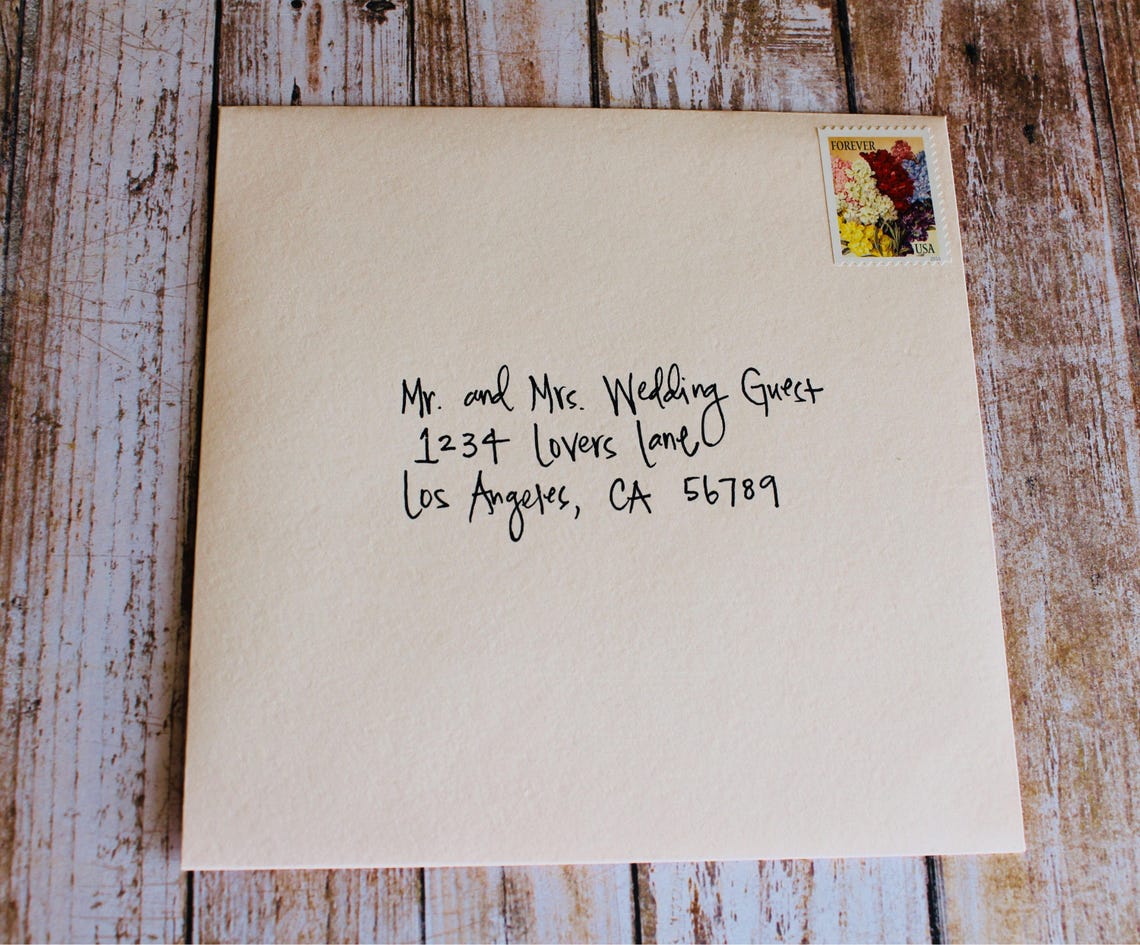 FOREVER
USA
Mr. and Mrs. Wedding Guest
1234 Lovers Lane
Los Angeles, CA 56789